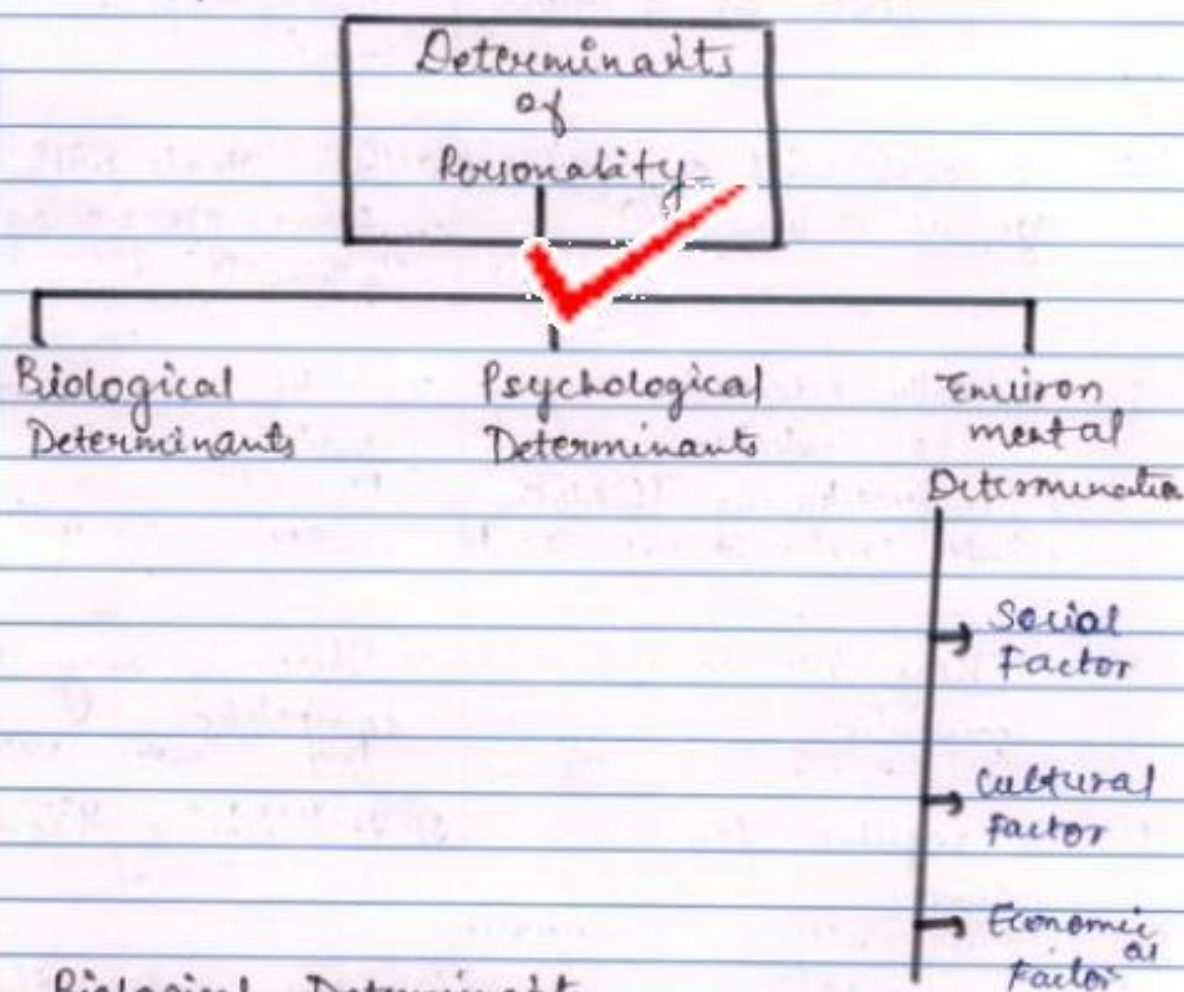 Determinants
of
Personality
Biological
Determinants
Psychological
Determinants
Environ
mental
Determination
Social
Factor
Cultural
Factor
Economic
al
Factor
Biological Determinant